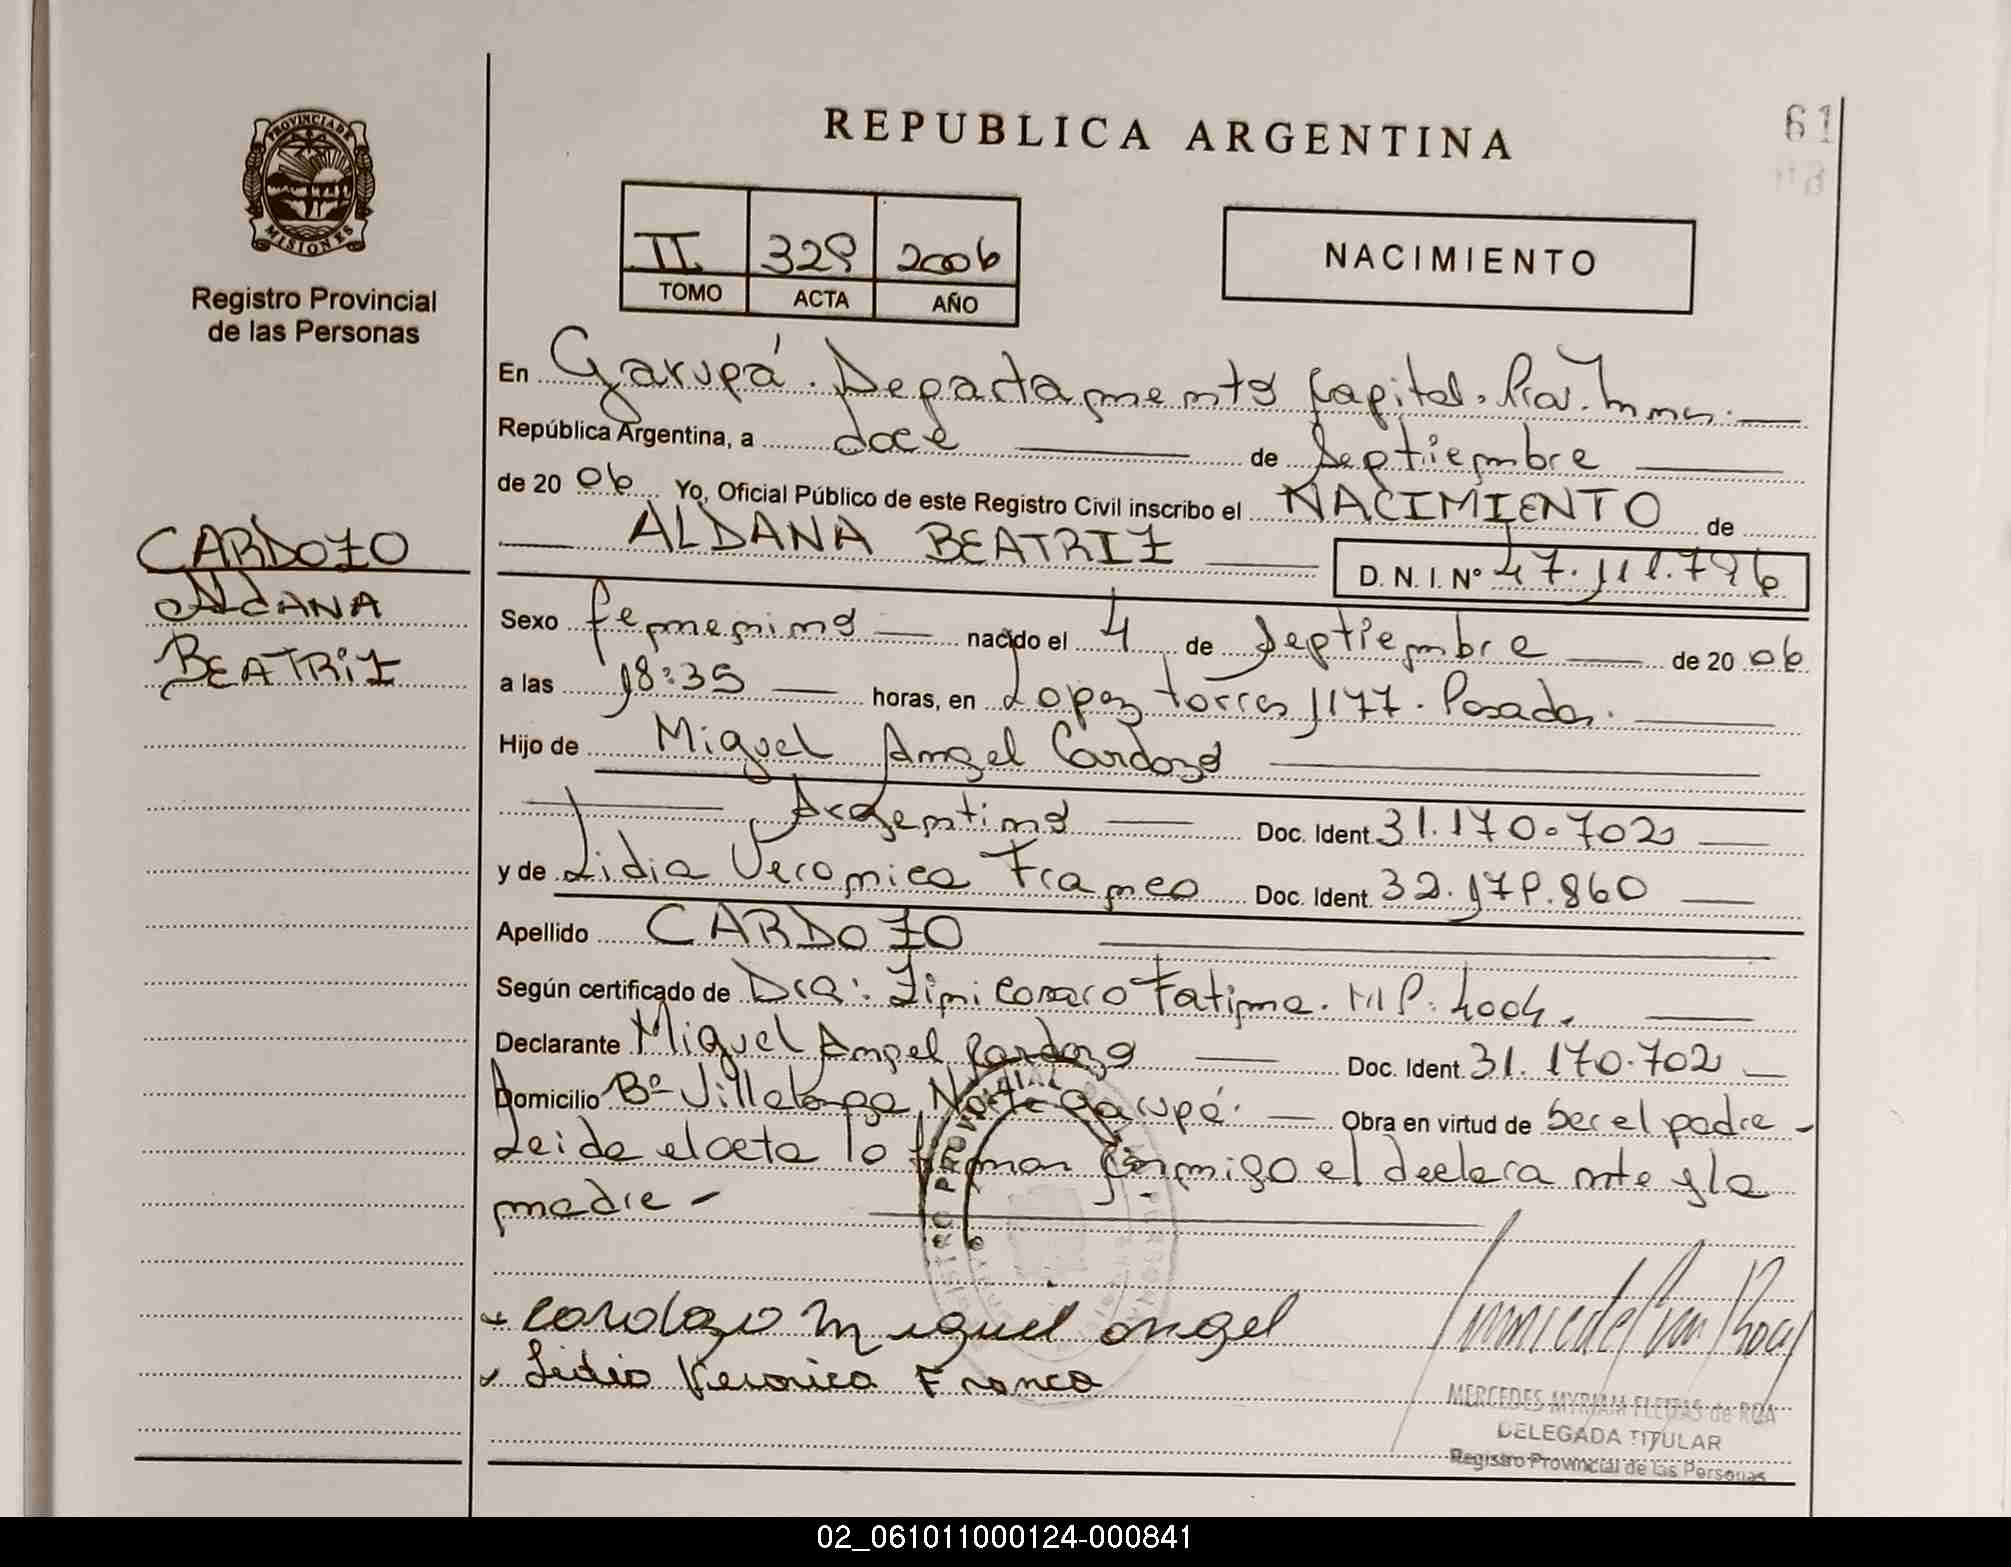 REPUBLICA ARGENTINA
61
PROVINCIA DE
MISIONES
Registro Provincial
de las Personas
II 329 2006
TOMO ACTA AÑO
NACIMIENTO
En Garupá. Departamento Capital. Prov. Mnes.
República Argentina, a doce de Septiembre
de 20 06 Yo, Oficial Público de este Registro Civil inscribo el NACIMIENTO de
ALDANA BEATRIZ
D. N. I. Nº 47.111.796
CARDOZO
ALDANA
BEATRIZ
Sexo femenino nacido el 4 de Septiembre de 20 06
a las 18:35 horas, en Lopez Torres 1177. Posadas.
Hijo de Miguel Angel Cardozo
Argentino Doc. Ident. 31.170.702
y de Lidia Veronica Franco Doc. Ident. 32.179.860
Apellido CARDOZO
Según certificado de Dra: Fatima. MP: 4004.
Declarante Miguel Angel Cardozo Doc. Ident. 31.170.702
Domicilio Bº Villalonga Norte Garupá. Obra en virtud de ser el padre -
Leida el acta lo firman conmigo el declarante y la
madre -
Cardozo Miguel Angel
Lidia Veronica Franco
MERCEDES MYRIAM FLEITAS de ROA
DELEGADA TITULAR
Registro Provincial de las Personas
02_061011000124-000841